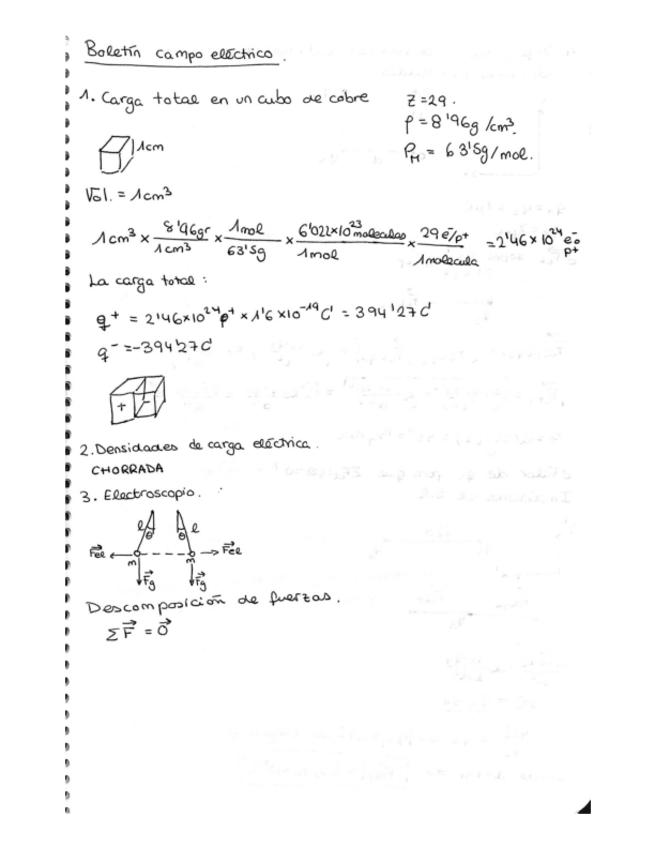 Boletín campo eléctrico.
1. Carga total en un cubo de cobre
Z=29.
ρ=8'96g/cm³.
P_M = 63'5g/mol.
1cm
Vol. = 1cm³
1cm³ × 8'96gr/1cm³ × 1mol/63'5g × 6'022×10²³ moleculas/1mol × 29 e⁻/p⁺/1molecula = 2'46×10²⁴ e⁻ o p⁺
La carga total:
q⁺ = 2'46×10²⁴p⁺ × 1'6×10⁻¹⁹C = 394'27C
q⁻ = -394'27C
+ -
2. Densidades de carga eléctrica.
CHORRADA
3. Electroscopio.
l θ θ l
F⃗el F⃗el
m m
F⃗g F⃗g
Descomposición de fuerzas.
ΣF⃗ = 0⃗